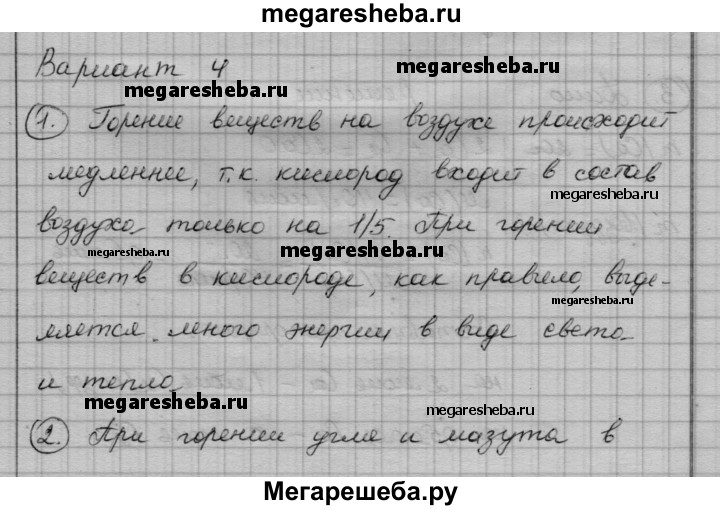 megaresheba.ru
Вариант 4
megaresheba.ru
megaresheba.ru
1. Горение веществ на воздухе происходит
медленнее, т.к. кислород входит в состав
megaresheba.ru
воздуха только на 1/5. При горении
megaresheba.ru megaresheba.ru
веществ в кислороде, как правило, выде-
megaresheba.ru
ляется много энергии в виде света
и тепла
megaresheba.ru megaresheba.ru
2. При горении угля и мазута в
Мегарешеба.ру